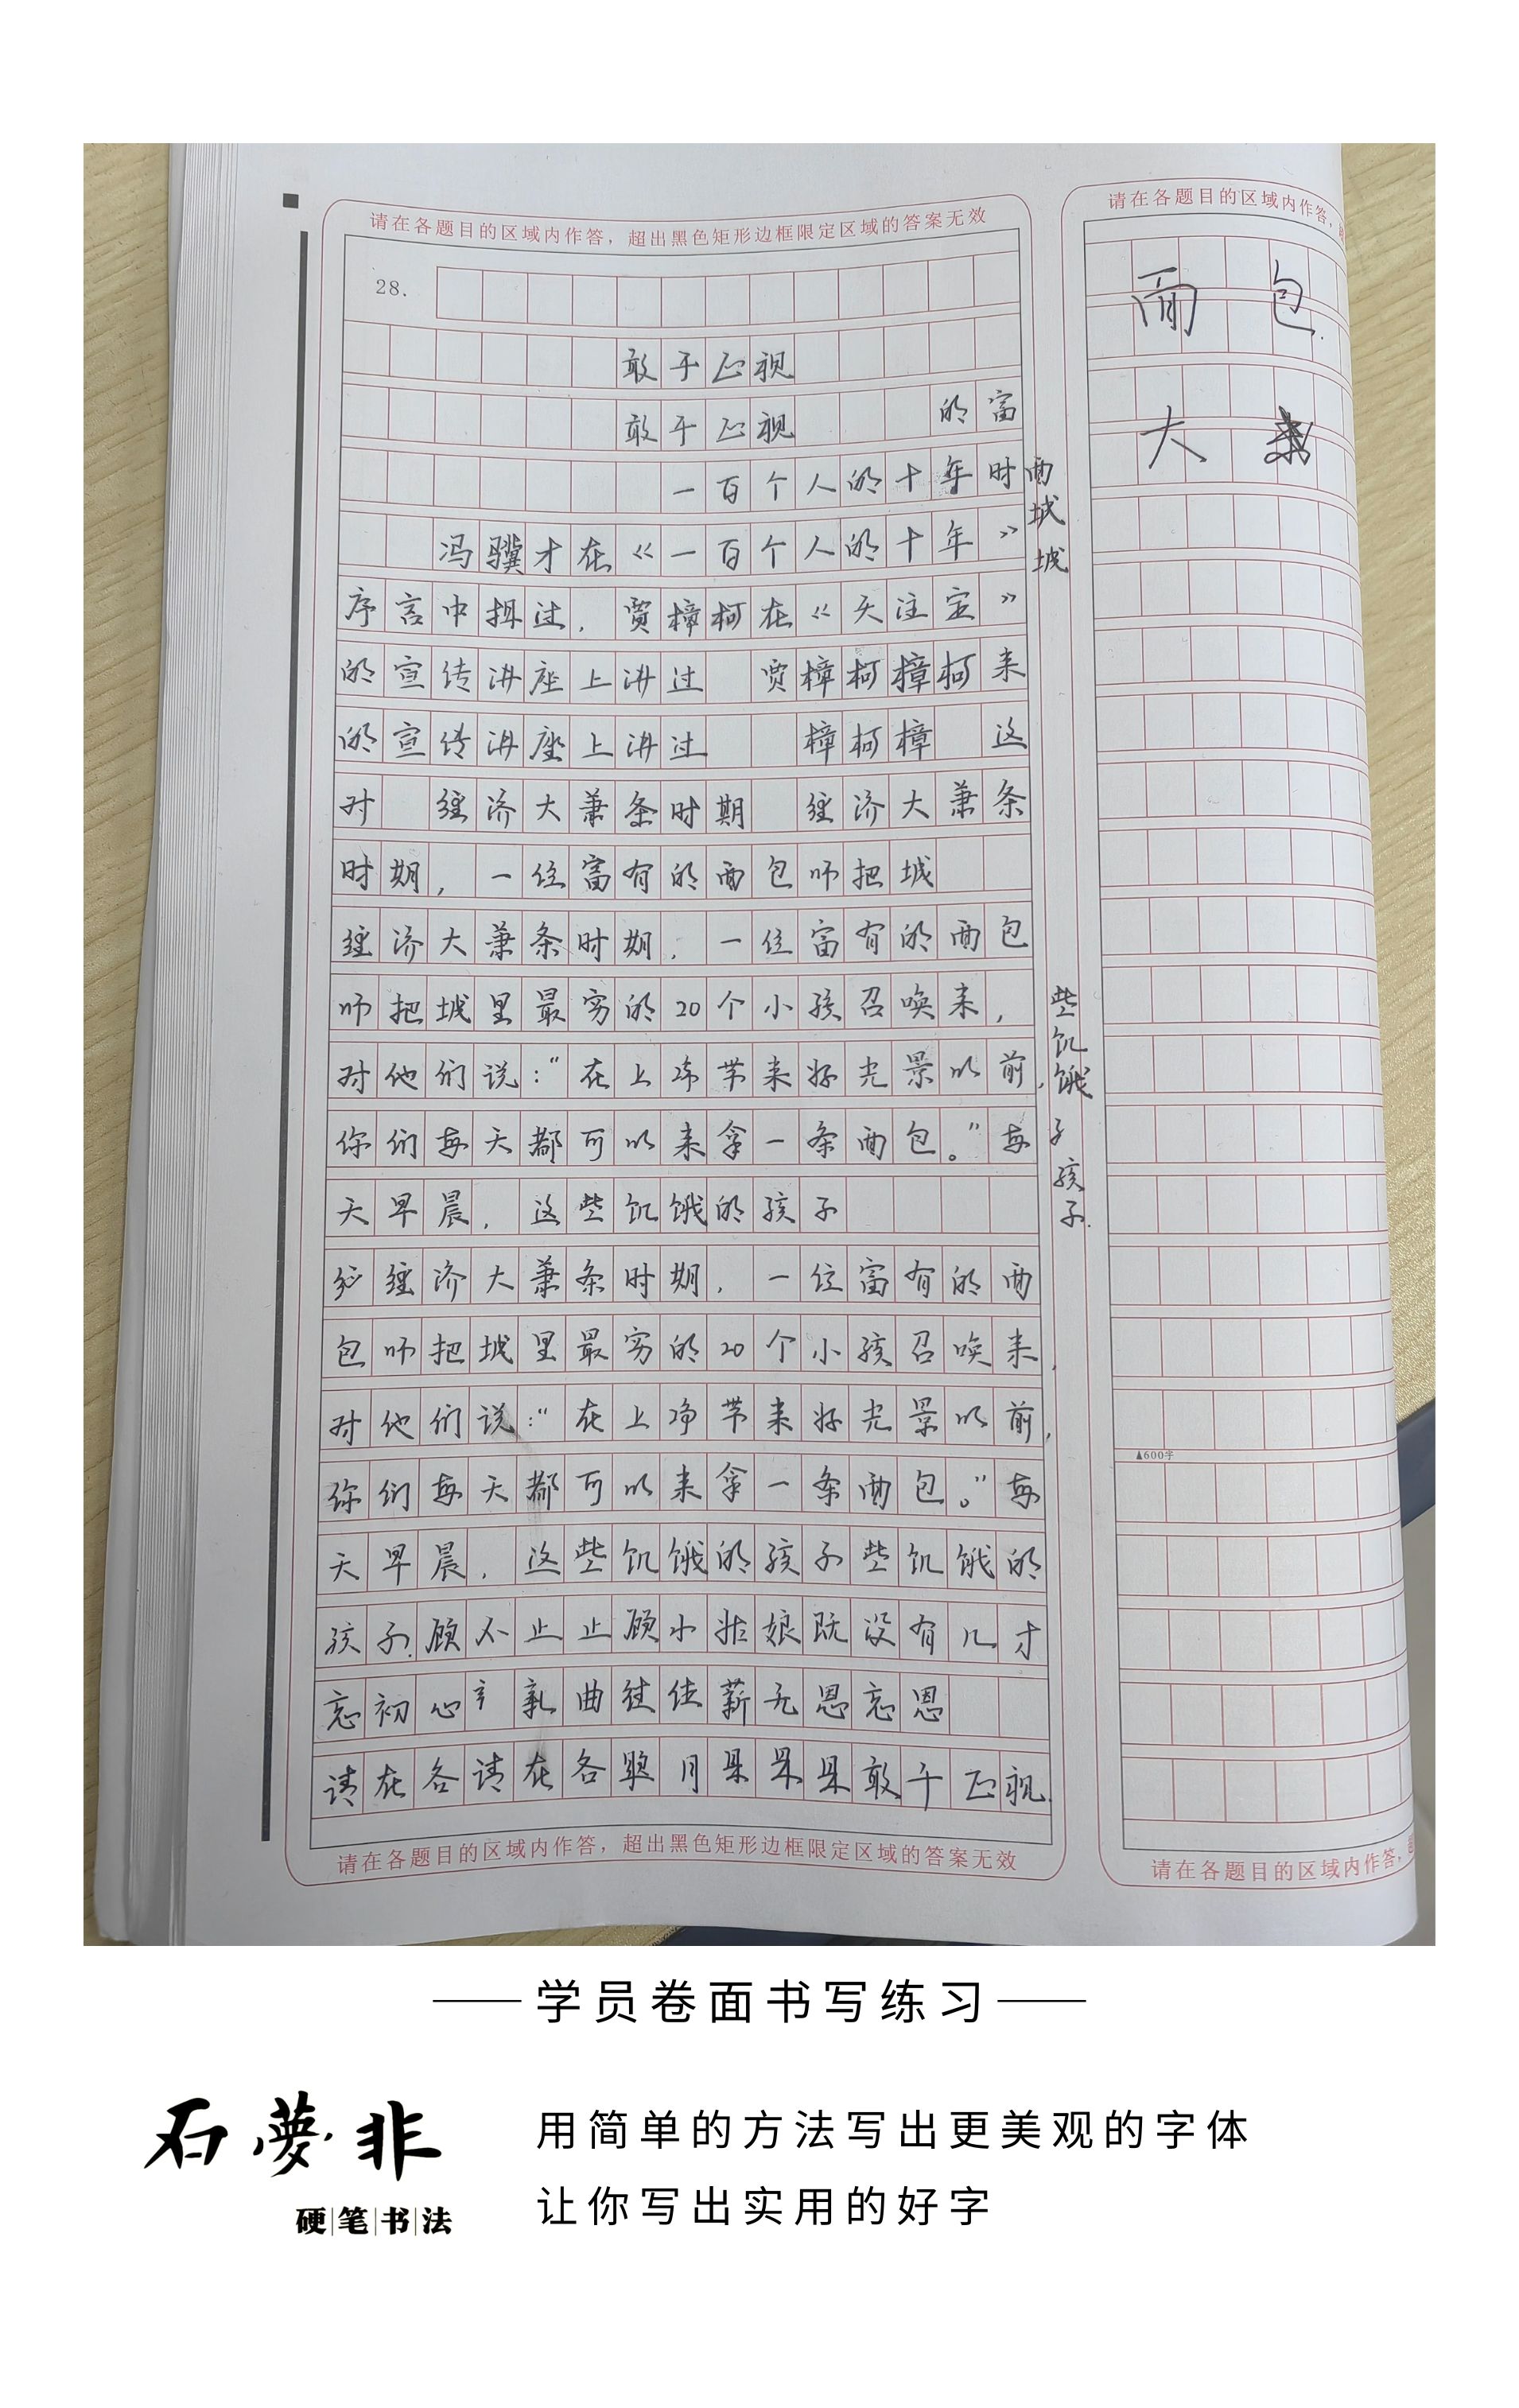 请在各题目的区域内作答，超出黑色矩形边框限定区域的答案无效
28.
敢于正视
敢于正视 的富
一百个人的十年时
冯骥才在《一百个人的十年》
序言中提过，贾樟柯在《天注定》
的宣传讲座上讲过 贾樟柯樟柯来
的宣传讲座上讲过 樟柯樟 这
对 经济大萧条时期 经济大萧条
时期，一位富有的面包师把城
经济大萧条时期，一位富有的面包
师把城里最穷的20个小孩召唤来，
对他们说：“在上帝带来好光景以前，
你们每天都可以来拿一条面包。”每
天早晨，这些饥饿的孩子
经济大萧条时期，一位富有的面
包师把城里最穷的20个小孩召唤来，
对他们说：“在上帝带来好光景以前，
你们每天都可以来拿一条面包。”每
天早晨，这些饥饿的孩子些饥饿的
孩子顾不止止顾小姑娘既没有几才
忘初心 曲往往薪无恩忘恩
请在各请在各题月是果是敢于正视
请在各题目的区域内作答，超出黑色矩形边框限定区域的答案无效
面
城
城
些
饥
饿
子
孩
子
请在各题目的区域内作答，
面 包
大
▲600字
请在各题目的区域内作答，
学员卷面书写练习
石梦非
硬笔书法
用简单的方法写出更美观的字体
让你写出实用的好字